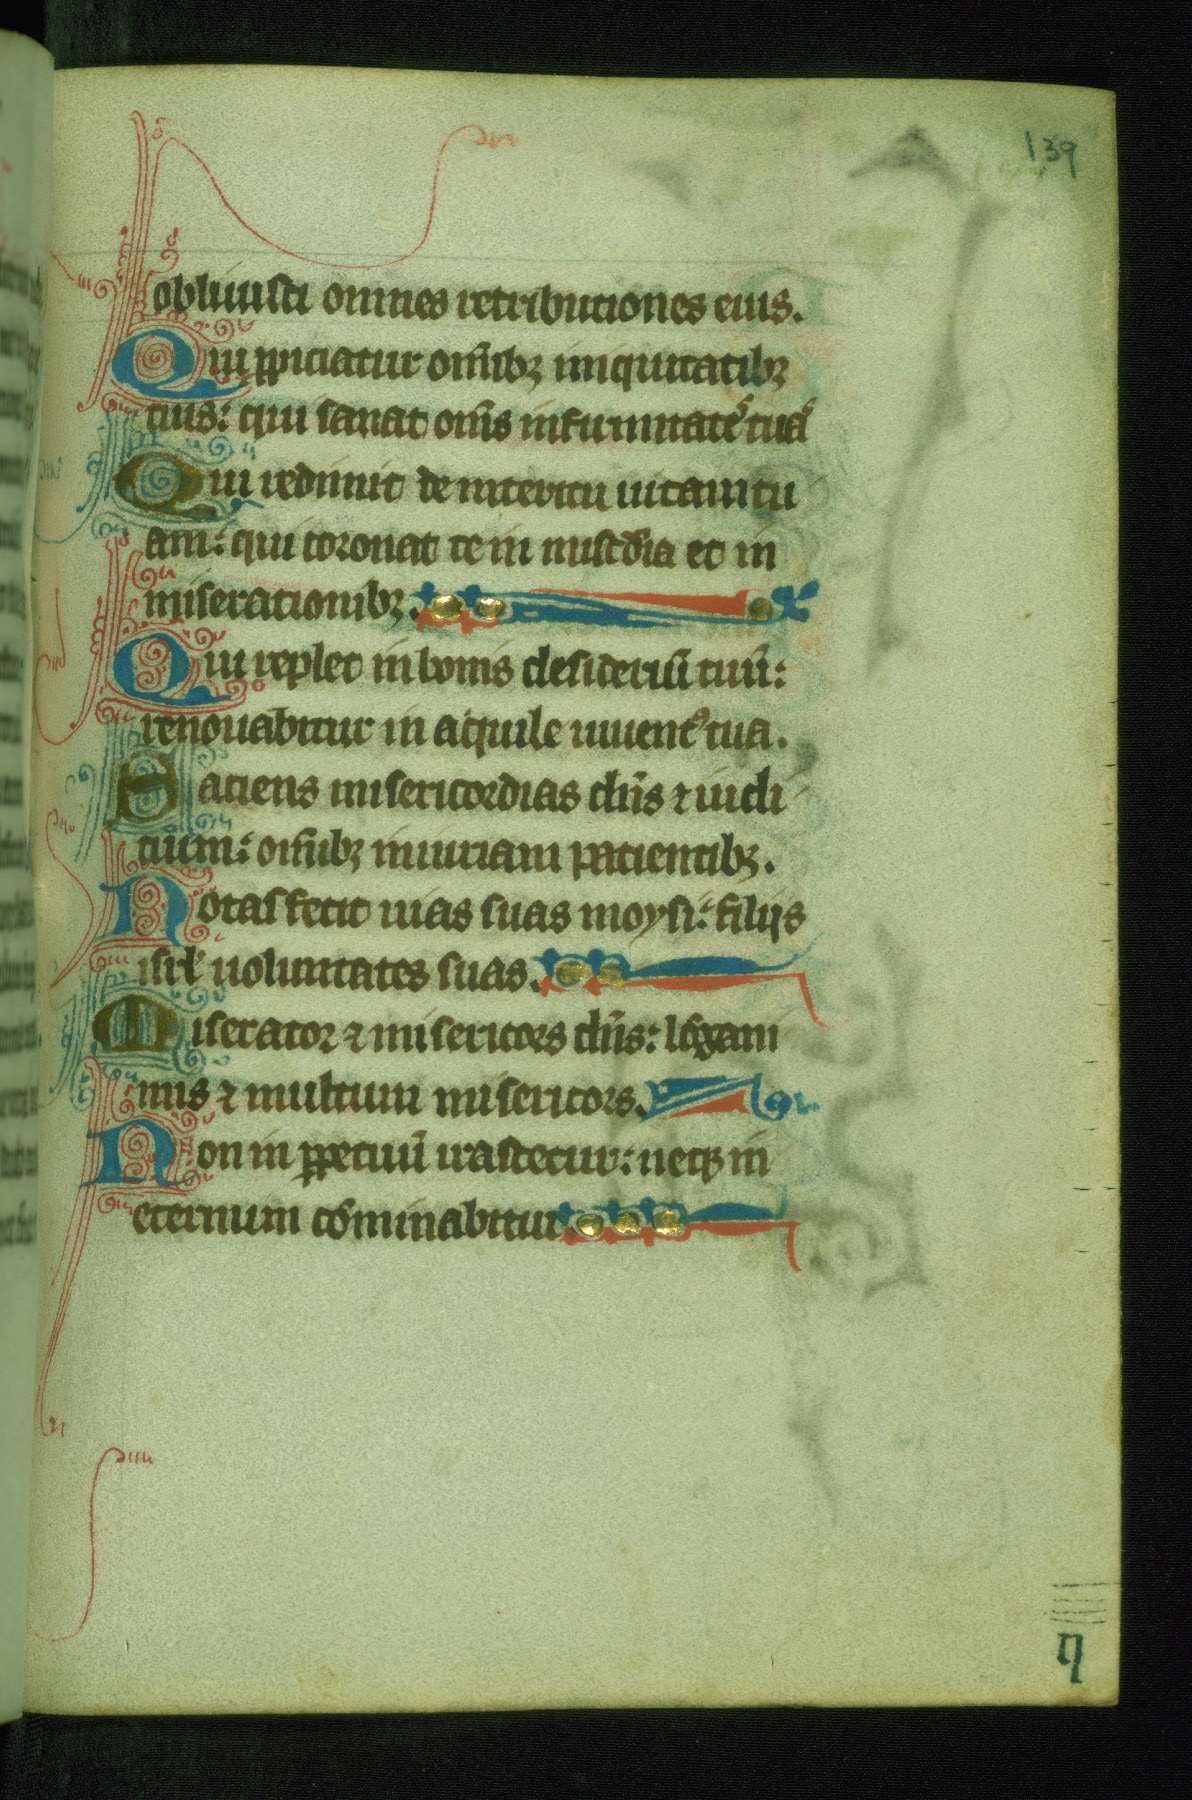 139
obliuisci omnes retributiones eius.
Qui ꝓpiciatur om̄ibꝫ iniquitatibꝫ
tuis: qui sanat om̄s infirmitatē tuā
Qui redimit de interitu uitam tu
am: qui coronat te in misc̄dia et in
miserationibꝫ.
Qui replet in bonis desideriū tuū:
renouabitur in aquile iuuent᷒ tua.
Faciens misericordias dn̄s ⁊ iudi
cium: om̄ibꝫ iniuriam pacientibꝫ.
Notas fecit uias suas moysi: filijs
isrl̄ uoluntates suas.
Miserator ⁊ misericors dn̄s: longani
mis ⁊ multum misericors.
Non in ꝑpetuū irascetur: neqꝫ in
eternum cōminabitur.